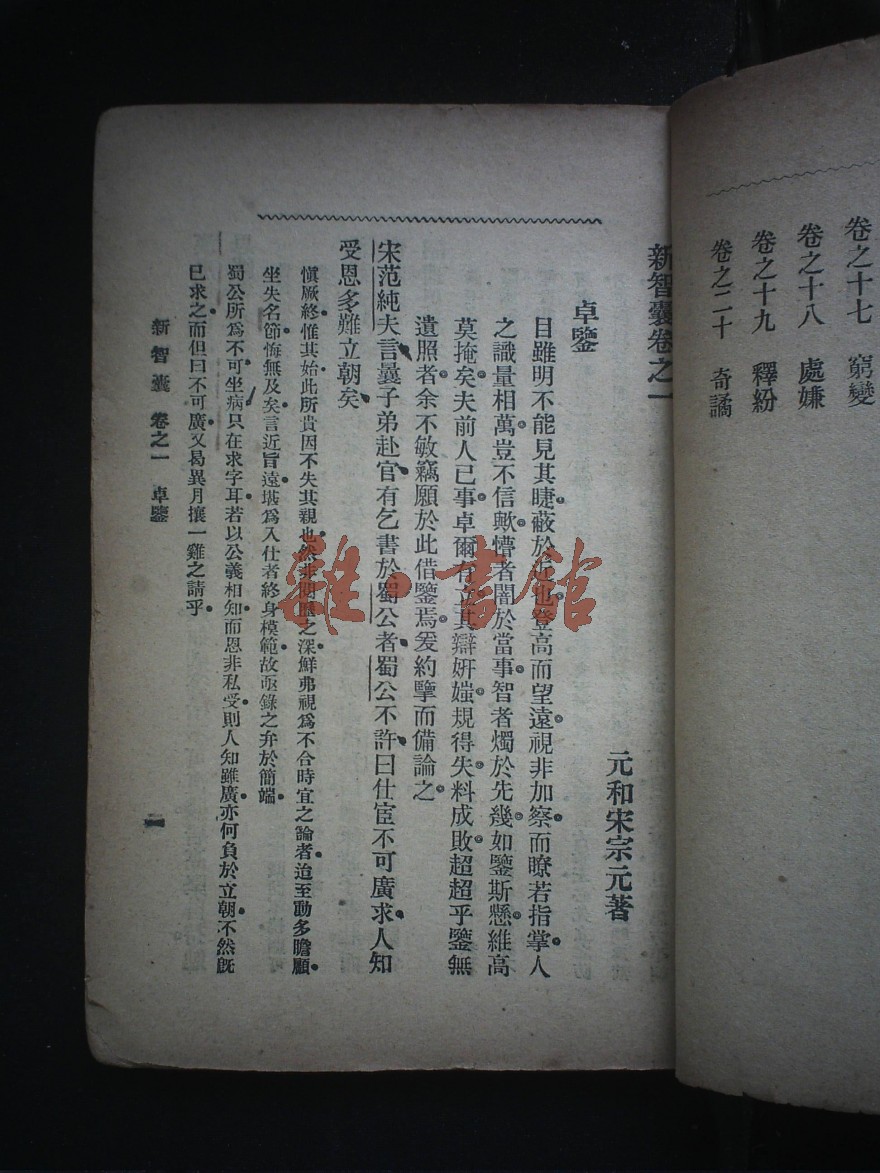 卷之十七　窮變
卷之十八　處嫌
卷之十九　釋紛
卷之二十　奇譎
新智囊卷之一
元和宋宗元著
卓鑒
目雖明不能見其睫蔽於近也登高而望遠視非加察而瞭若指掌人
之識量相萬豈不信歟懵者闇於當事智者燭於先幾如鑒斯懸維高
莫掩矣夫前人已事卓爾有立其辯妍媸規得失料成敗超超乎鑒無
遺照者余不敏竊願於此借鑒焉爰約擥而備論之
宋范純夫言曩子弟赴官有乞書於蜀公者蜀公不許曰仕宦不可廣求人知
受恩多難立朝矣
愼厥終惟其始此所貴因不失其親也然非閱歷之深鮮弗視爲不合時宜之論者迨至動多瞻顧
坐失名節悔無及矣言近旨遠堪爲入仕者終身模範故亟錄之弁於簡端
蜀公所爲不可坐病只在求字耳若以公義相知而恩非私受則人知雖廣亦何負於立朝不然旣
已求之而但曰不可廣又曷異月攘一雞之請乎
新智囊　卷之一　卓鑒
一
雜·書館